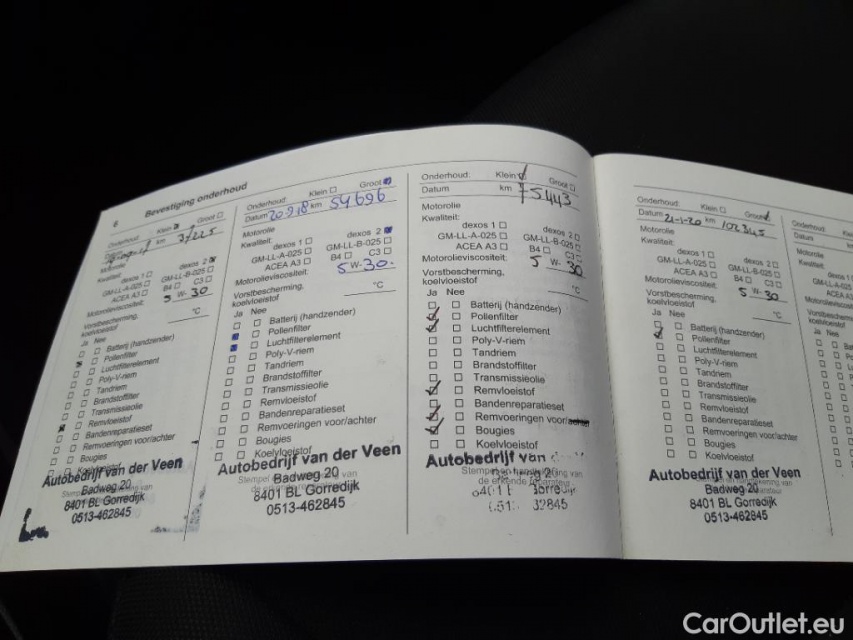 6 Bevestiging onderhoud
Onderhoud: Klein Groot
km 37225
Motorolie
Kwaliteit:
dexos 1 dexos 2
GM-LL-A-025 GM-LL-B-025
ACEA A3 B4 C3
Motorolieviscositeit: 5 W-30
Vorstbescherming, koelvloeistof °C
Ja Nee
Batterij (handzender)
Pollenfilter
Luchtfilterelement
Poly-V-riem
Tandriem
Brandstoffilter
Transmissieolie
Remvloeistof
Bandenreparatieset
Remvoeringen voor/achter
Bougies
Koelvloeistof
Autobedrijf van der Veen
Badweg 20
8401 BL Gorredijk
0513-462845
Onderhoud: Klein Groot
Datum 20-9-18 km 54696
Motorolie
Kwaliteit:
dexos 1 dexos 2
GM-LL-A-025 GM-LL-B-025
ACEA A3 B4 C3
Motorolieviscositeit: 5 W-30.
Vorstbescherming,
koelvloeistof °C
Ja Nee
Batterij (handzender)
Pollenfilter
Luchtfilterelement
Poly-V-riem
Tandriem
Brandstoffilter
Transmissieolie
Remvloeistof
Bandenreparatieset
Remvoeringen voor/achter
Bougies
Koelvloeistof
Autobedrijf van der Veen
Badweg 20
8401 BL Gorredijk
0513-462845
Onderhoud: Klein Groot
Datum km 75443
Motorolie
Kwaliteit:
dexos 1 dexos 2
GM-LL-A-025 GM-LL-B-025
ACEA A3 B4 C3
Motorolieviscositeit: 5 W-30
Vorstbescherming,
koelvloeistof °C
Ja Nee
Batterij (handzender)
Pollenfilter
Luchtfilterelement
Poly-V-riem
Tandriem
Brandstoffilter
Transmissieolie
Remvloeistof
Bandenreparatieset
Remvoeringen voor/achter
Bougies
Koelvloeistof
Autobedrijf van
Onderhoud: Klein Groot
Datum 21-1-20 km 102345
Motorolie
Kwaliteit:
dexos 1 dexos 2
GM-LL-A-025 GM-LL-B-025
ACEA A3 B4 C3
Motorolieviscositeit: 5 W-30
Vorstbescherming,
koelvloeistof °C
Ja Nee
Batterij (handzender)
Pollenfilter
Luchtfilterelement
Poly-V-riem
Tandriem
Brandstoffilter
Transmissieolie
Remvloeistof
Bandenreparatieset
Remvoeringen voor/achter
Bougies
Koelvloeistof
Autobedrijf van der Veen
Badweg 20
8401 BL Gorredijk
0513-462845
Onderhoud:
Datum
Motorolie
Kwaliteit:
CarOutlet.eu